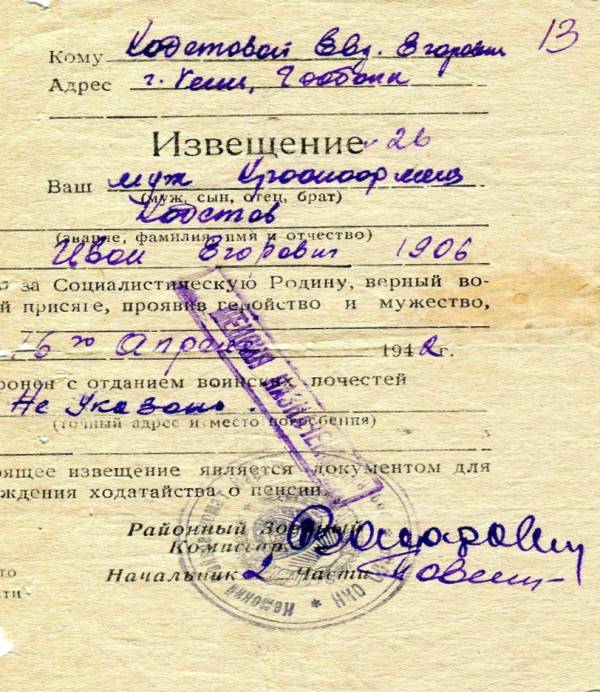 13
Кому Кодстовой Евд. Егоровн
Адрес г.
Извещение 26
Ваш муж Красноармеец
(муж, сын, отец, брат)
Кодстов
(звание, фамилия, имя и отчество)
Иван Егорович 1906
за Социалистическую Родину, верный во-
й присяге, проявив геройство и мужество,
6го Апреля 1942 г.
оронен с отданием воинских почестей
Не указано.
(точный адрес и место погребения)
оящее извещение является документом для
ждения ходатайства о пенсии.
ПЕНСИЯ НАЗНАЧЕНА
Районный Военный
Комиссар
Начальник 2 Части